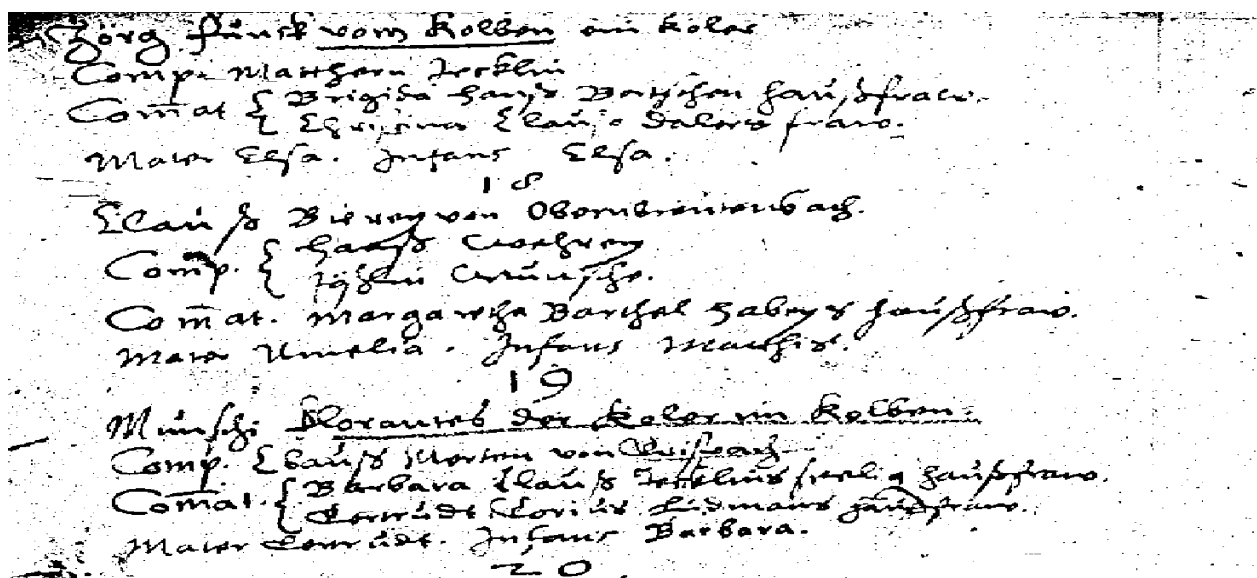 Jörg Funck vom Kolben ein Koler
Comp: Matthern Jecklin
Comat { Brigida Hanß Bertschen haußfraw.
{ Christina Clauß Dalers fraw.
Mater Elsa. Infans Elsa.
18
Clauß Bierey von Obernbreitenbach.
Comp. { Hanß
{
Comat. Margaretha Barthel Habeys haußfraw.
Mater Amelia. Infans Matthis.
19
Munschi Florantes der Koler im Kolben.
Comp. Clauß Morten von
Comat. { Barbara Clauß Jecklins seelig haußfraw.
{ Gertrudt Lorius Ludmans haußfraw.
Mater Gertrudt. Infans Barbara.
20